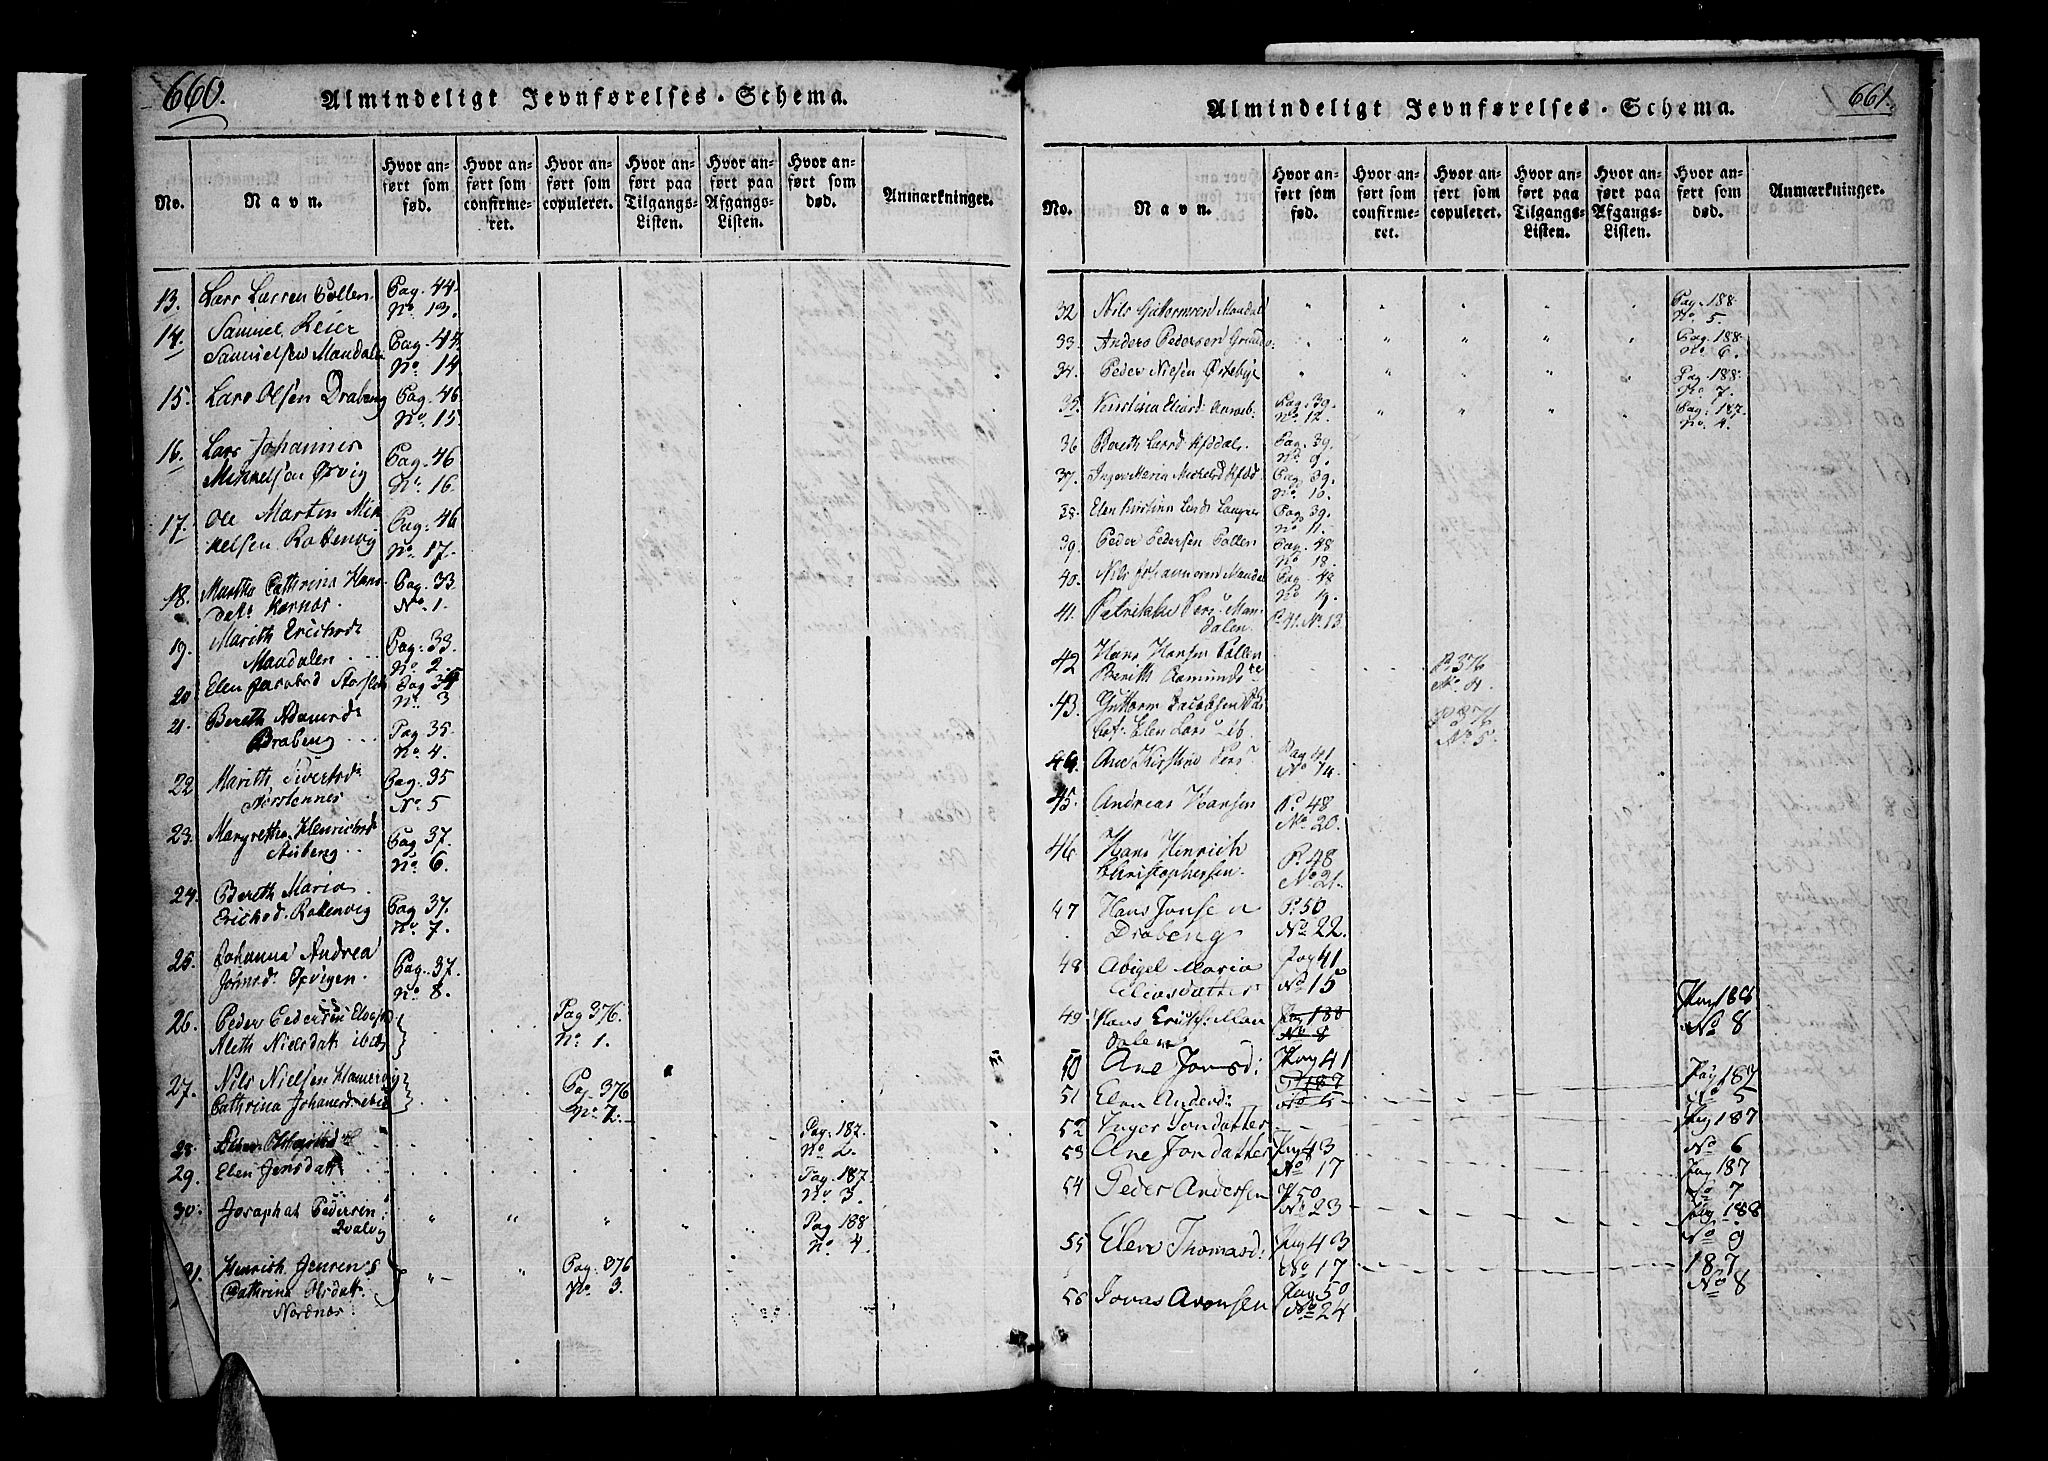 660.
Almindeligt Jevnførelses-Schema.
No.
Navn.
Hvor anført som fød.
Hvor anført som confirmeret.
Hvor anført som copuleret.
Hvor anført paa Tilgangs-Listen.
Hvor anført paa Afgangs-Listen.
Hvor anført som død.
Anmærkninger.
13. Lars Larsen Pollen. Pag. 44.
No. 13.
14. Samuel Reier
Samuelsen Mandalen Pag. 44.
No. 14
15. Lars Olsen Drabeng Pag. 46.
No. 15
16. Lars Johannes Pag. 46
Mikkelsen Ørvig No. 16.
17. Ole Martin Mik Pag: 46
kelsen Rottenvig No. 17.
18. Martha Cathrina Hans Pag. 33
datr Kornes. No. 1.
19. Marith Erichsd Pag: 33.
Mandalen No. 2.
20 Elen Jacobsd Pag 34
No. 3
21. Bereth Pag 35.
Drabeng No. 4.
22 Marith Siverts Pag. 35
No. 5
23. Margrethe Henrichsd Pag 37.
No. 6
24. Bereth Maria Pag 37.
Erichsd. Rottenvig No. 7.
25. Johanna Andrea Pag. 37.
Johnsd. No. 8.
26. Peder Pedersen Pag 376.
Aleth Nielsdatr ibid No. 1.
27. Nils Nielsen Hamervig Pag. 376
Cathrina Johansd. ibid No. 2.
28. Pag. 187.
No. 2.
29. Elen Jensdatr Pag. 187.
No. 3.
30. Josaphat Pedersen Pag 188
Qvalvig No. 4.
31. Henrich Jensen Pag. 376
Cathrina Olsdatr No. 3.
Nordnæs
661.
Almindeligt Jevnførelses-Schema.
No.
Navn.
Hvor anført som fød.
Hvor anført som confirmeret.
Hvor anført som copuleret.
Hvor anført paa Tilgangs-Listen.
Hvor anført paa Afgangs-Listen.
Hvor anført som død.
Anmærkninger.
32 Nils Guttormsen Mandal Pag. 188
No. 5.
33. Anders Pedersen Pag. 188.
No. 6.
34. Peder Nielsen Pag. 188.
No. 7.
35. Pag. 39. Pag. 187.
No. 12. No. 4.
36 Bereth Larsd Pag. 39.
No. 9.
37. Inger Maria Michelsd Pag. 39.
No. 10.
38. Elen Kirstina Pag. 39.
No. 11.
39. Peder Pedersen Pollen Pag. 48
No. 18.
40. Nils Johannesen Mandal Pag. 48
No. 19.
41. Petrikke Pers Man
dalen. P. 41. No. 13.
42 Hans Hansen Pollen P. 376
Berith Asmunds No. 4.
43. Guttorm Jacobsen P. 376
Elen Lars ib. No. 5.
44. Ane Kirstine Pers Pag 41
No 14.
45. Andreas Hansen P. 48
No. 20.
46 Hans Hinrich P. 48
Christophersen. No. 21.
47 Hans Jonsen P. 50
Drabeng No. 22.
48 Abigel Maria Pag 41
Eliasdatter No 15
49 Hans Erichs: Man Pag 188 Pag 188
dalen No 8 No 8
50 Ane Jonsd: Pag 41
51 Elen Andersd: P 187 Pag 187
No 5 No 5
52 Inger Jondatter Pag 187
No 6
53 Ane Jondatter Pag 43 Pag 187
No 17 No 7
54 Peder Andersen P 50 Pag 188
No 23 No 9
55 Elen Thomasd: Pag 43 187
No 17 No 8
56 Jonas Aronsen Pag 50
No 24